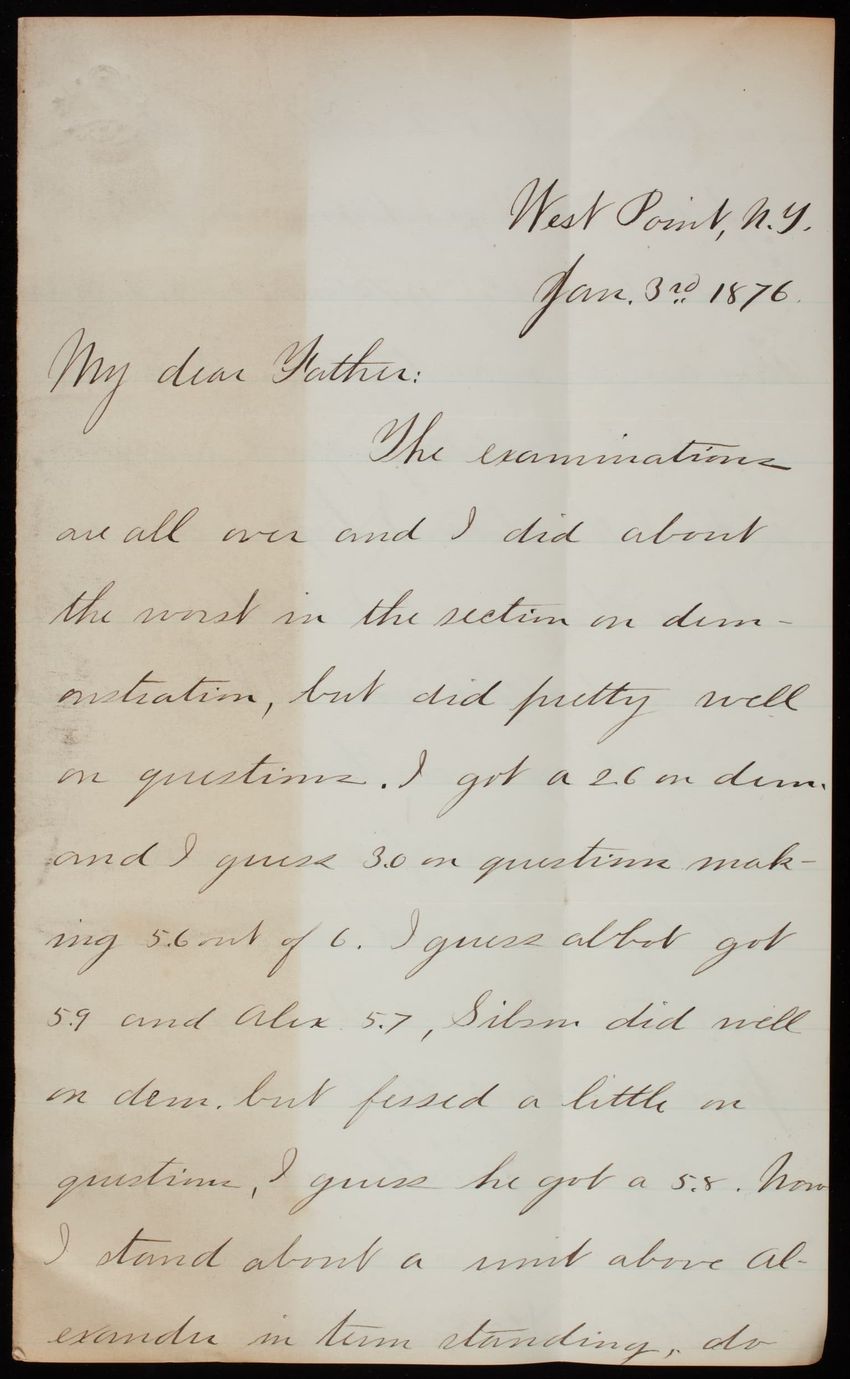 West Point, N.Y.
Jan. 3rd 1876.
My dear Father:
The examinations
are all over and I did about
the worst in the section on dem-
onstration, but did pretty well
on questions. I got a 2.6 on dem.
and I guess 3.0 on questions mak-
ing 5.6 out of 6. I guess abbot got
5.9 and Alex 5.7, Gibson did well
on dem. but fessed a little on
questions, I guess he got a 5.8. Now
I stand about a unit above Al-
exander in term standing, do